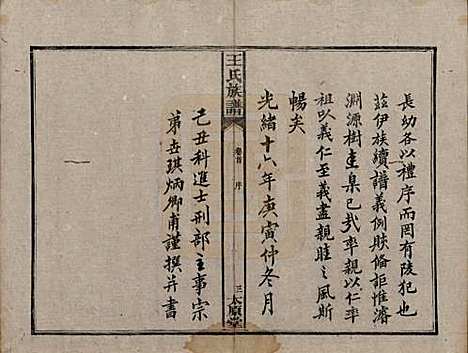 長幼各以禮序而罔有陵犯也
茲伊族續譜義例賅倫詎惟濬
淵源樹圭臬已哉率親以仁率
祖以義仁至義盡親睦之風斯
暢矣
光緒十六年庚寅仲冬月
王氏族譜
卷首 序
三 太原堂
己丑科進士刑部主事宗
弟世琪炳卿甫謹撰并書